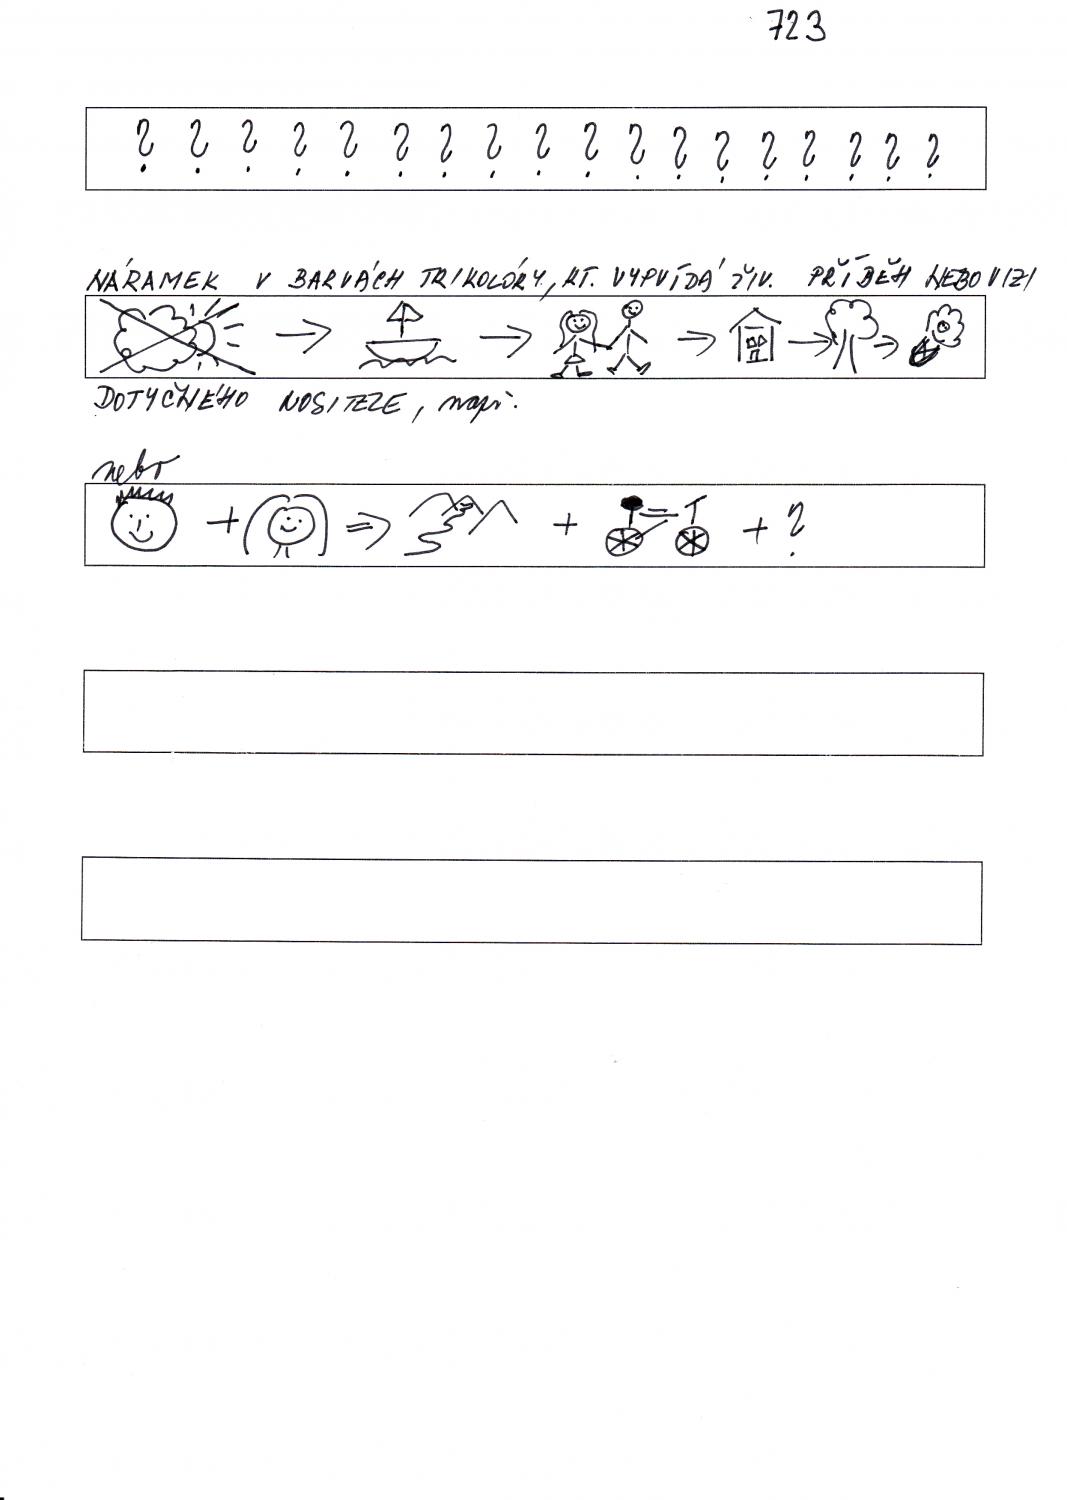 723
? ? ? ? ? ? ? ? ? ? ? ? ? ? ? ? ? ?
NÁRAMEK V BARVÁCH TRIKOLÓRY, KT. VYPVÍDÁ ŽIV. PŘÍBĚH NEBO VIZI
DOTYČNÉHO NOSITELE, např.
nebo
+ ⇒ + + ?